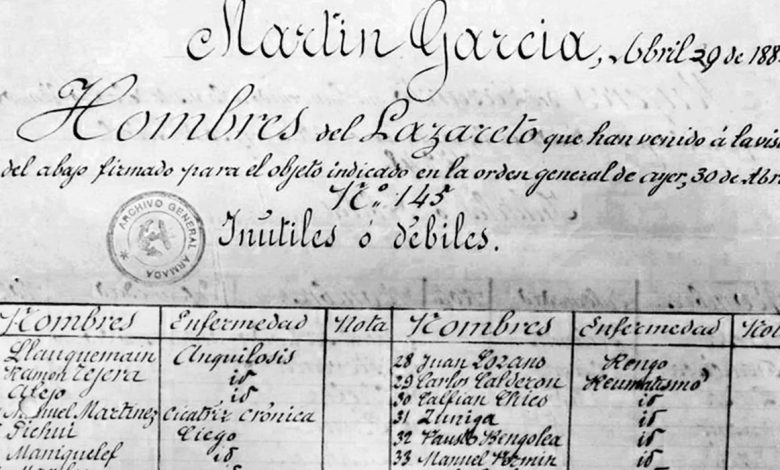 Martin Garcia, Abril 29 de 188
Hombres del Lazareto que han venido á la vis
del abajo firmado para el objeto indicado en la orden general de ayer, 30 de Abr
Nº 145
Inútiles ó débiles.
ARCHIVO GENERAL ARMADA
Hombres Enfermedad Nota Hombres Enfermedad No
Llauquemain Anquilosis 28 Juan Lozano Rengo
Ramon Tejera id 29 Carlos Calderon Reumatismo
Alejo id 30 Calfian id
Manuel Martinez Cicatriz crónica 31 Zuniga id
Pichui Ciego 32 Fausto Bengolea id
Maniquelef id 33 Manuel Fermin id